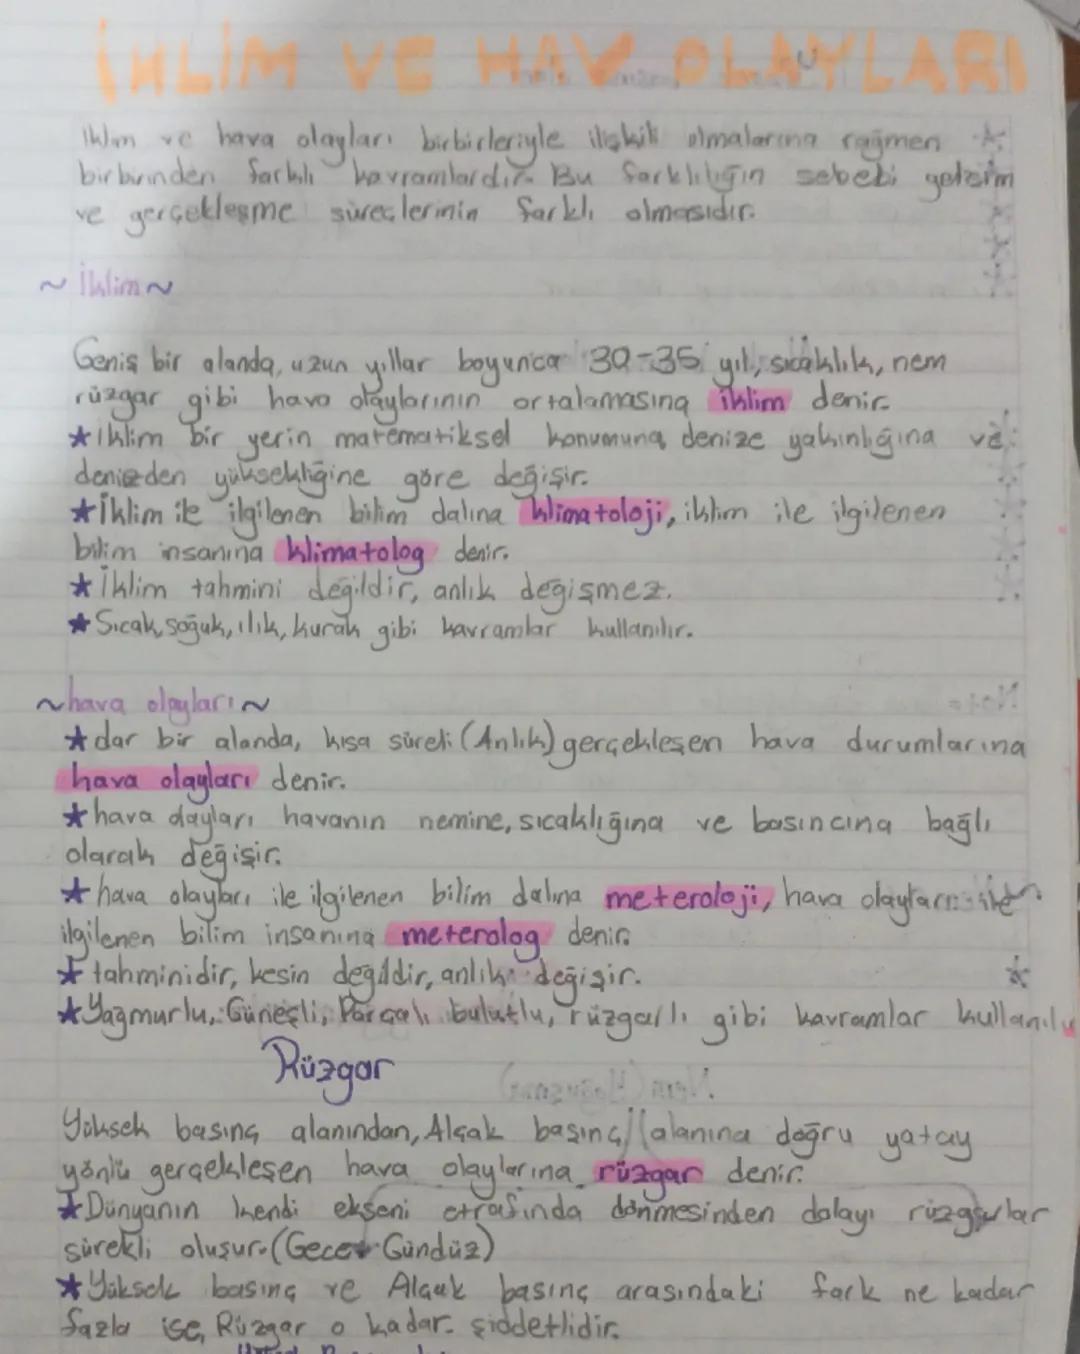 İKLİM VE HAV OLAYLARI
İklim ve hava olayları birbirleriyle ilişkili olmalarına rağmen
birbirinden farklı kavramlardır. Bu farklılığın sebebi
ve gerçekleşme süreçlerinin farklı olmasıdır.
~ İklim ~
Geniş bir alanda, uzun yıllar boyunca 30-35 yıl, sıcaklık, nem
rüzgar gibi hava olaylarının ortalamasına iklim denir.
★İklim bir yerin matematiksel konumuna, denize yakınlığına ve
denizden yüksekliğine göre değişir.
★İklim ile ilgilenen bilim dalına klimatoloji, iklim ile ilgilenen
bilim insanına klimatolog denir.
★İklim tahmini değildir, anlık değişmez.
★Sıcak, soğuk, ılık, kurak gibi kavramlar kullanılır.
~hava olayları~
★dar bir alanda, kısa süreli (Anlık) gerçekleşen hava durumlarına
hava olayları denir.
★hava olayları havanın nemine, sıcaklığına ve basıncına bağlı
olarak değişir.
★hava olayları ile ilgilenen bilim dalına meteroloji, hava olayları ile
ilgilenen bilim insanına meterolog denir.
★tahminidir, kesin değildir, anlık değişir.
★Yağmurlu, Güneşli, Parçalı bulutlu, rüzgarlı gibi kavramlar
Rüzgar
Yüksek basınç alanından, Alçak basınç alanına doğru yatay
yönlü gerçekleşen hava olaylarına rüzgar denir.
★Dünyanın kendi ekseni etrafında dönmesinden dolayı rüzgarlar
sürekli oluşur. (Gece Gündüz)
★Yüksek basınç ve Alçak basınç arasındaki fark ne kadar
fazla ise, Rüzgar o kadar şiddetlidir.